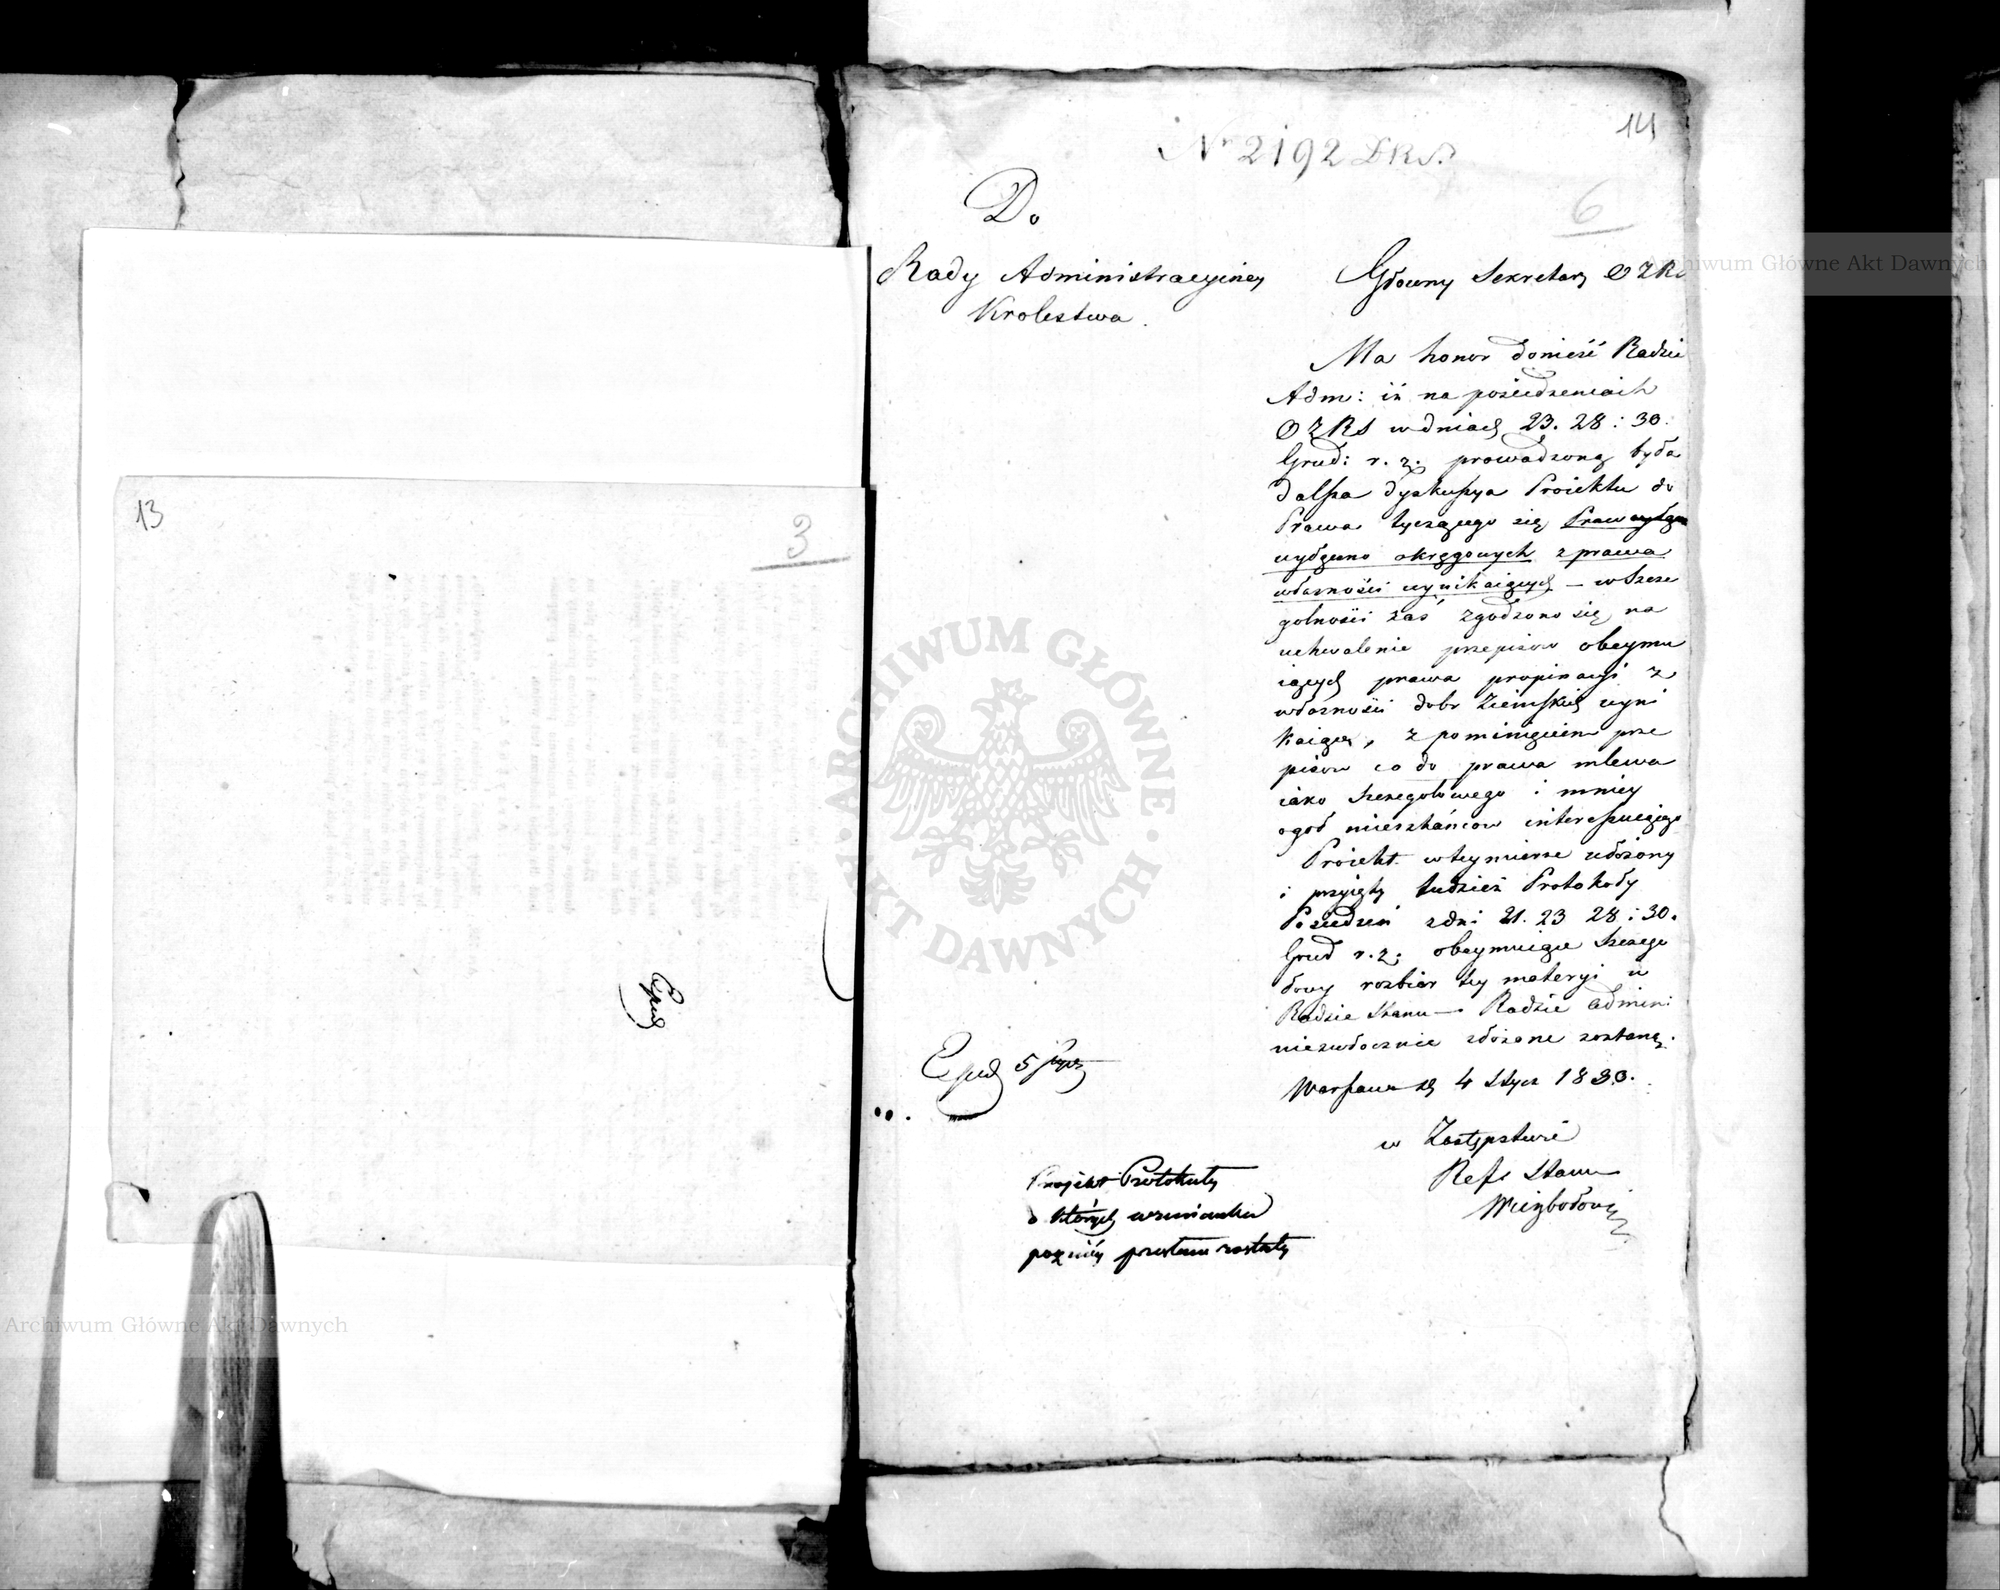 13
3
Exped
14
Nr 2192 D.R.S.
6
Do
Rady Administracyiney
Krolestwa.
Głowny Sekretarz OZRS
Ma honor donieść Radzie
Adm: iż na posiedzeniach
OZRS w dniach 23. 28 i 30.
Grud: r. z. prowadzoną była
dalsza dyskussya Proiektu do
Prawa tyczącego się Praw wyłącz
wyłączno okręgowych z prawa
własności wynikaiących – w szcze
golności zaś zgodzono się na
uchwalenie przepisow obeymu
iących prawa propinacyi z
własności dobr Ziemskich wyni
kaiące, z pominięciem prze
pisow co do prawa mlewa
iako szczegolowego i mniey
ogoł mieszkańcow interessuiącego
Proiekt w tey mierze ułożony
i przyięty tudzież Protokoły
Posiedzeń z dni 21. 23 28 i 30.
Grud r. z. obeymuiące szczego
łowy rozbior tey materyi w
Radzie Stanu — Radzie Admini
niezwłocznie złożone zostaną.
Warszawa d. 4 Stycz 1830.
w Zastępstwie
Refr Stanu
Wieyborowski
Exped 5 Stycz
Projekt Protokuły
o których wzmianka
pozniey przesłane zostały
ARCHIWUM GŁÓWNE
AKT DAWNYCH
Archiwum Główne Akt Dawnych
Archiwum Główne Akt Dawnych